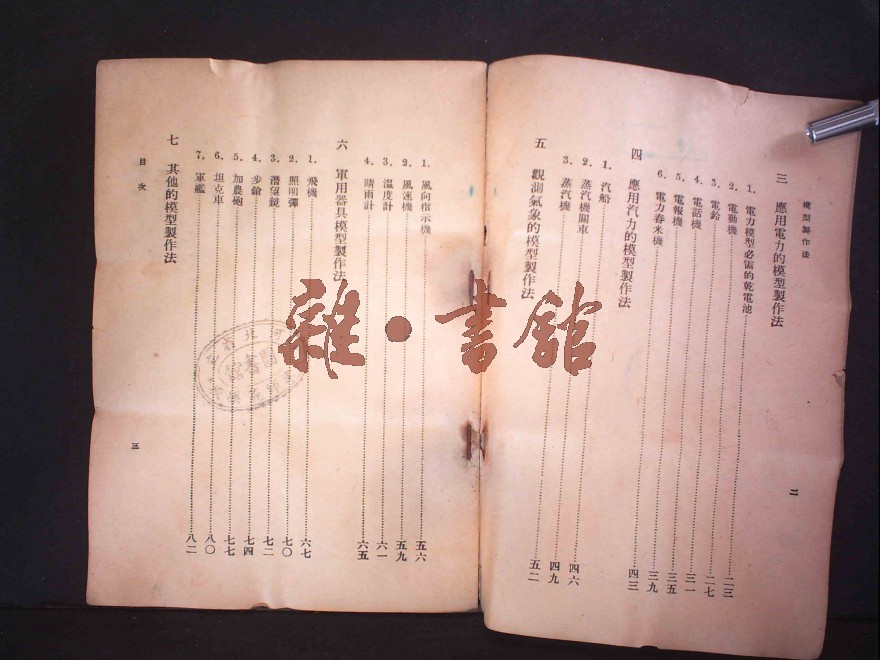 模型製作法
三 應用電力的模型製作法
1. 電力模型必需的乾電池……二三
2. 電動機……二七
3. 電鈴……三一
4. 電話機……三五
5. 電報機……三九
6. 電力舂米機……四三
四 應用汽力的模型製作法
1. 汽船……四六
2. 蒸汽機關車……四九
3. 蒸汽機……五二
五 觀測氣象的模型製作法
二
1. 風向指示機……五六
2. 風速機……五九
3. 溫度計……六一
4. 晴雨計……六五
六 軍用器具模型製作法
1. 飛機……六七
2. 照明彈……七〇
3. 潛望鏡……七二
4. 步鎗……七四
5. 加農砲……七七
6. 坦克車……八〇
7. 軍艦……八二
七 其他的模型製作法
目次
三
雜·書館